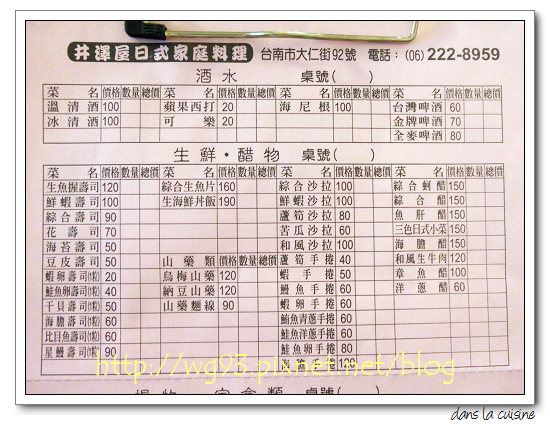 井澤屋日式家庭料理 台南市大仁街92號 電話：(06) 222-8959
酒水 桌號( )
菜名 價格 數量 總價 菜名 價格 數量 總價 菜名 價格 數量 總價 菜名 價格 數量 總價
溫清酒 100 蘋果西打 20 海尼根 100 台灣啤酒 60
冰清酒 100 可樂 20 金牌啤酒 70
全麥啤酒 80
生鮮・醋物 桌號( )
菜名 價格 數量 總價 菜名 價格 數量 總價 菜名 價格 數量 總價 菜名 價格 數量 總價
生魚握壽司 120 綜合生魚片 160 綜合沙拉 100 綜合蚵醋 150
鮮蝦壽司 100 生海鮮丼飯 190 鮮蝦沙拉 100 綜合醋 150
綜合壽司 90 蘆筍沙拉 80 魚肝醋 150
花壽司 70 苦瓜沙拉 60 三色日式小菜 150
海苔壽司 50 和風沙拉 100 海膽醋 150
豆皮壽司 50 山藥類 價格 數量 總價 蘆筍手捲 40 和風生牛肉 120
蝦卵壽司(1粒) 20 烏梅山藥 120 蝦手捲 50 章魚醋 100
鮭魚卵壽司(1粒) 40 納豆山藥 120 鰻魚手捲 60 洋蔥醋 60
干貝壽司(1粒) 50 山藥麵線 90 蝦卵手捲 60
海膽壽司(1粒) 60 鮪魚青蔥手捲 60
比目魚壽司(1粒) 60 鮭魚洋蔥手捲 60
星鰻壽司(1粒) 90 鮭魚卵手捲 80
海膽手捲 120
http://wg93.pixnet.net/blog
桌號( )
dans la cuisine